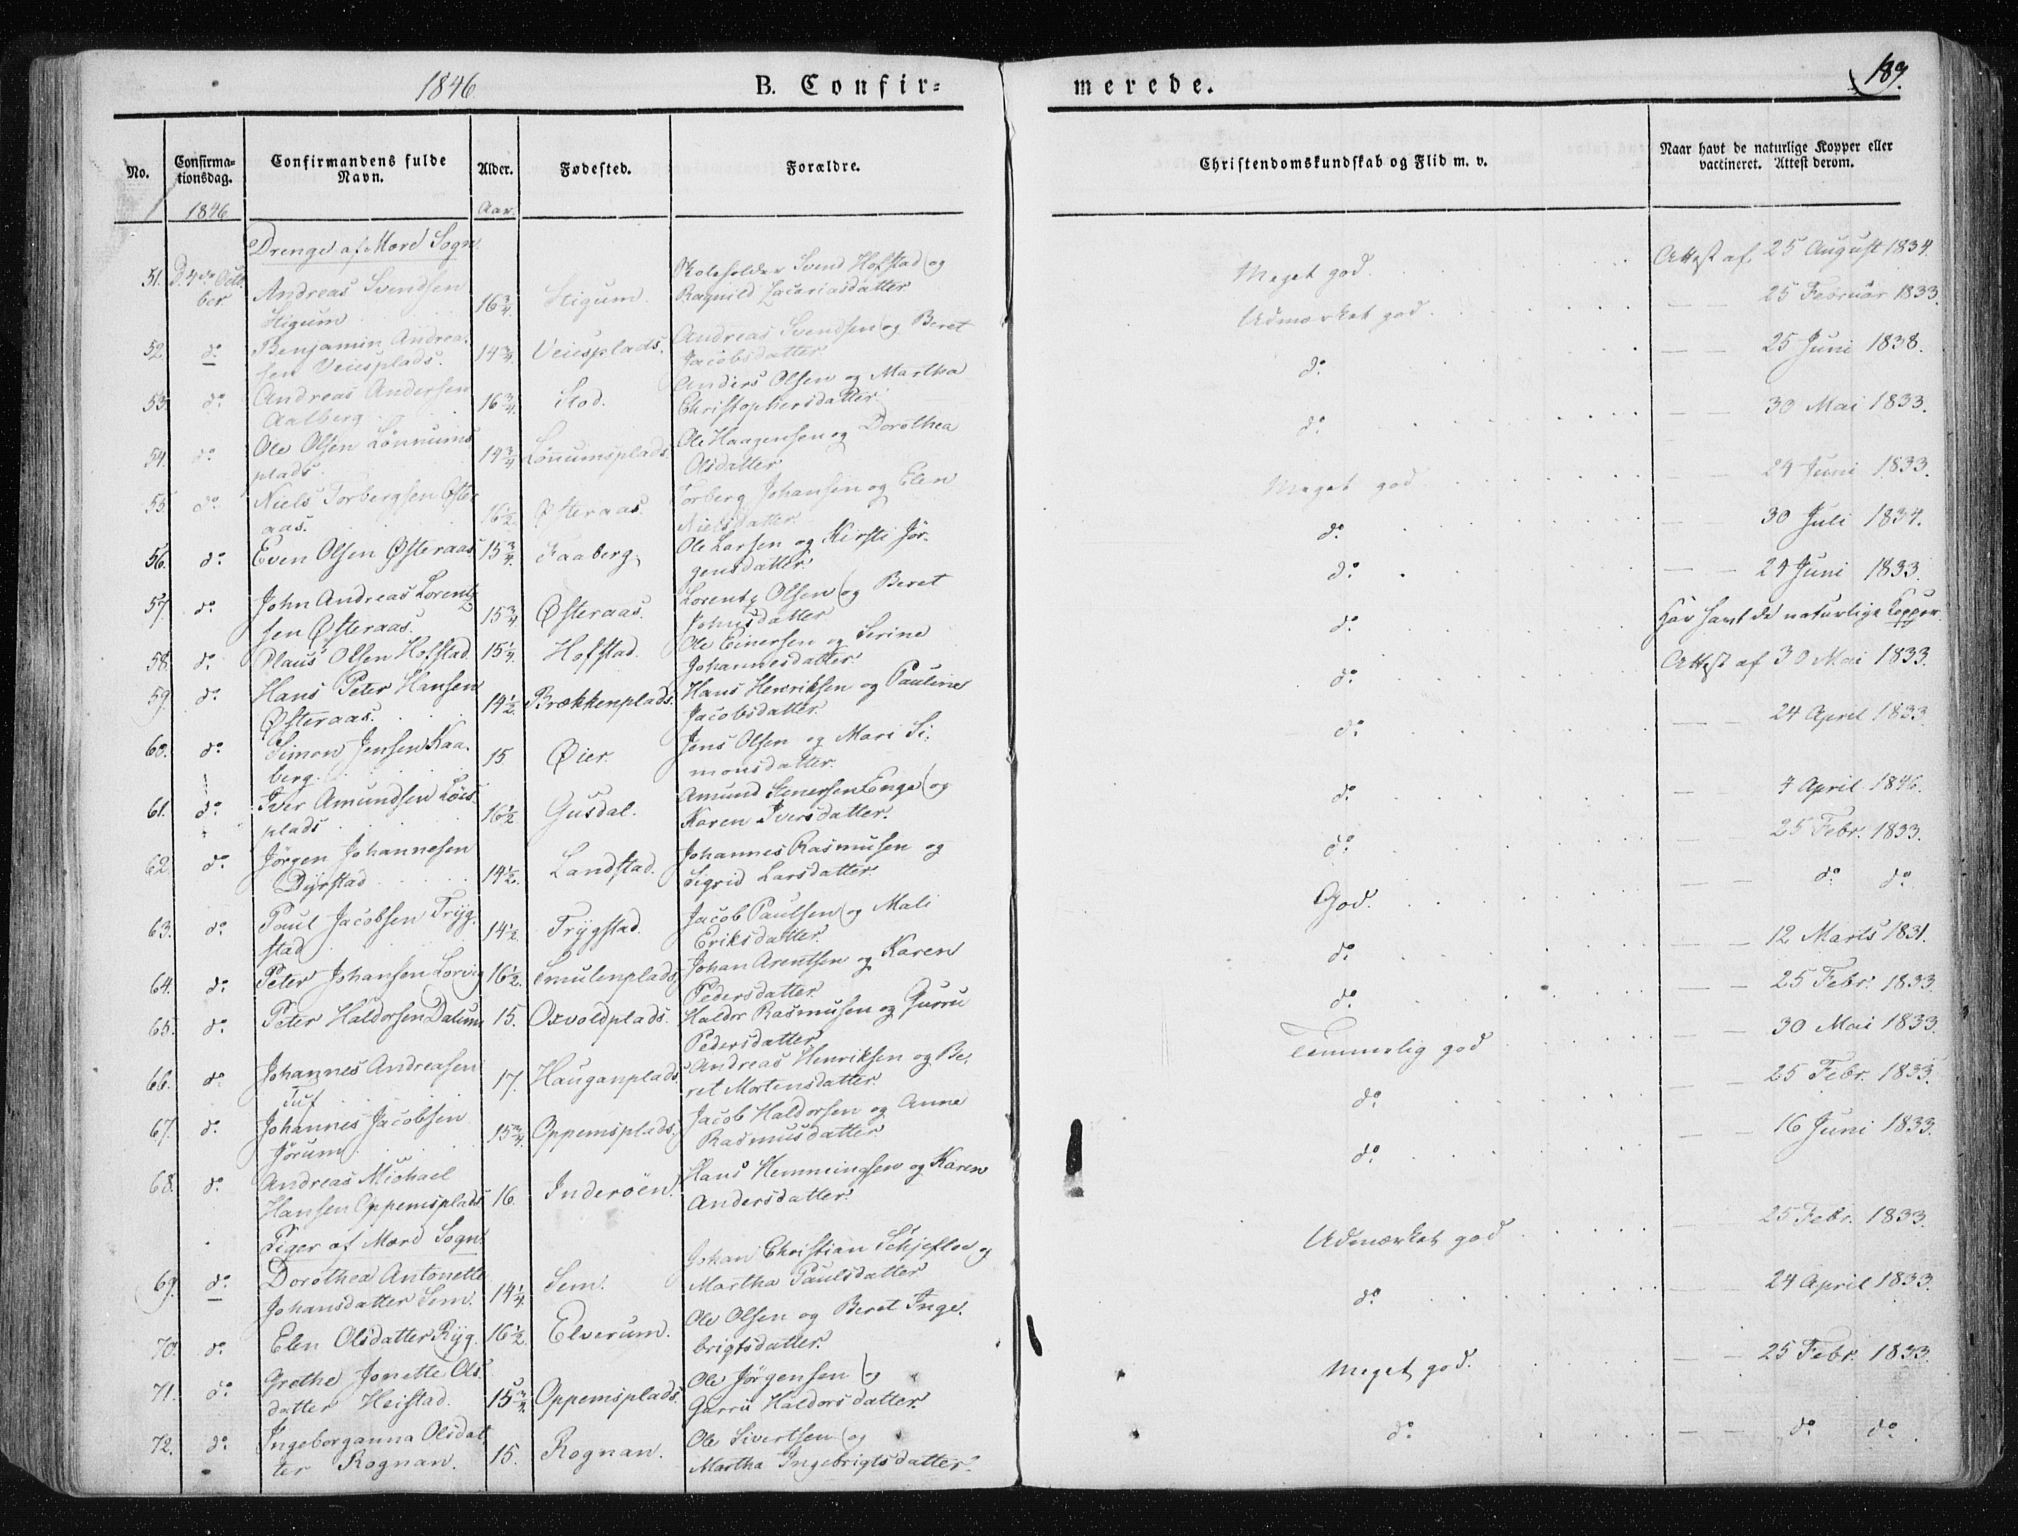 1846
B. Confir=
merede.
189.
No.
Confirma-
tionsdag.
Confirmandens fulde
Navn.
Alder.
Fødested.
Forældre.
Christendomskundskab og Flid m. v.
Naar havt de naturlige Kopper eller
vaccineret. Attest derom.
1846
Aar.
Drenge af Mære Sogn.
51. D. 4de Octo-
ber
Andreas Svendsen
Stigum
16 3/4. Stigum.
Skoleholder Svend Hofstad og
Ragnild Zacariasdatter
Meget god.
Attest af 25 August 1834.
52. do
Benjamin Andrea-
sen Veiesplads.
14 3/4 Veiesplads.
Andreas Svendsen og Beret
Jacobsdatter
Udmærket god.
— — 25 Februar 1833.
53. do
Andreas Andersen
Aalberg
16 3/4. Stod.
Anders Olsen og Martha
Christophersdatter
do
— — 25 Juni 1838.
54. do
Ole Olsen Lønnums
plads.
14 3/4 Lønumsplads.
Ole Haagensen og Dorothea
Olsdatter
do
— — 30 Mai 1833.
55. do
Niels Torbergsen Øster
aas.
16 1/2. Østeraas.
Torberg Johansen og Elen
Nielsdatter.
Meget god
— — 24 Juni 1833.
56. do
Even Olsen Østeraas
15 3/4. Faaberg.
Ole Larsen og Kirsti Jør-
gensdatter
do
— — 30 Juli 1834.
57. do
John Andreas Lorentz
sen Østeraas.
15 3/4 Østeraas.
Lorentz Olsen og Beret
Johnsdatter
do
— — 24 Juni 1833.
58. do
Claus Olsen Hofstad.
15 1/4. Hofstad.
Ole Einersen og Serine
Johannesdatter
do
Har havt de naturlige Kopper
59. do
Hans Peter Hansen
Østeraas.
14 1/2. Brækkenplads.
Hans Henriksen og Pauline
Jacobsdatter
do
Attest af 30 Mai 1833.
60. do
Simon Jensen Kaa-
berg.
15 Øier.
Jens Olsen og Mari Si-
monsdatter.
do
— — 24 April 1833.
61. do
Iver Amundsen Løes
plads
16 1/2 Gusdal.
Amund Stenersen Enge og
Karen Iversdatter.
do
— — 4 April 1846.
62. do
Jørgen Johannesen
Dyrstad
14 1/2. Landstad.
Johannes Rasmusen og
Sigrid Larsdatter.
do
— — 25 Febr. 1833.
63. do
Paul Jacobsen Tryg-
stad
14 1/2. Trygstad.
Jacob Paulsen og Mali
Eriksdatter.
God.
— — do do
64. do
Peter Johansen Lorvig
16 1/2. Smulenplads.
Johan Arentsen og Karen
Pedersdatter
do
— — 12 Marts 1831.
65. do
Peter Haldorsen Dalum
15. Oxvoldplads.
Haldor Rasmusen og Gurru
Pedersdatter
do
— — 25 Febr. 1833.
66. do
Johannes Andreasen
Tuf
17. Hauganplads.
Andreas Henriksen og Be-
ret Mortensdatter
Temmelig god
— — 30 Mai 1833.
67. do
Johannes Jacobsen
Jørum
15 3/4. Oppemsplads.
Jacob Haldorsen og Anne
Rasmusdatter
do
— — 25 Febr. 1833.
68. do
Andreas Michael
Hansen Oppemsplads
16. Inderøen.
Hans Hemmingsen og Karen
Andersdatter.
do
— — 16 Juni 1833.
Piger af Mære Sogn.
69. do
Dorothea Antonette
Johansdatter Sem.
14 1/4 Sem.
Johan Christian Schjeflo og
Martha Paulsdatter
Udmærket god
— — 25 Febr. 1833.
70. do
Elen Olsdatter Ryg.
16 1/2. Elverum.
Ole Olsen og Beret Inge-
brigtsdatter.
do
— — 24 April 1833.
71. do
Grethe Jonette Ols-
datter Heistad.
15 3/4. Oppemsplads.
Ole Jørgensen og
Gurru Haldorsdatter.
Meget god.
— — 25 Febr. 1833.
72. do
Ingeborganna Olsdat-
ter Rognan.
15. Rognan.
Ole Sivertsen og
Martha Ingebrigtsdatter.
do
— — do do.